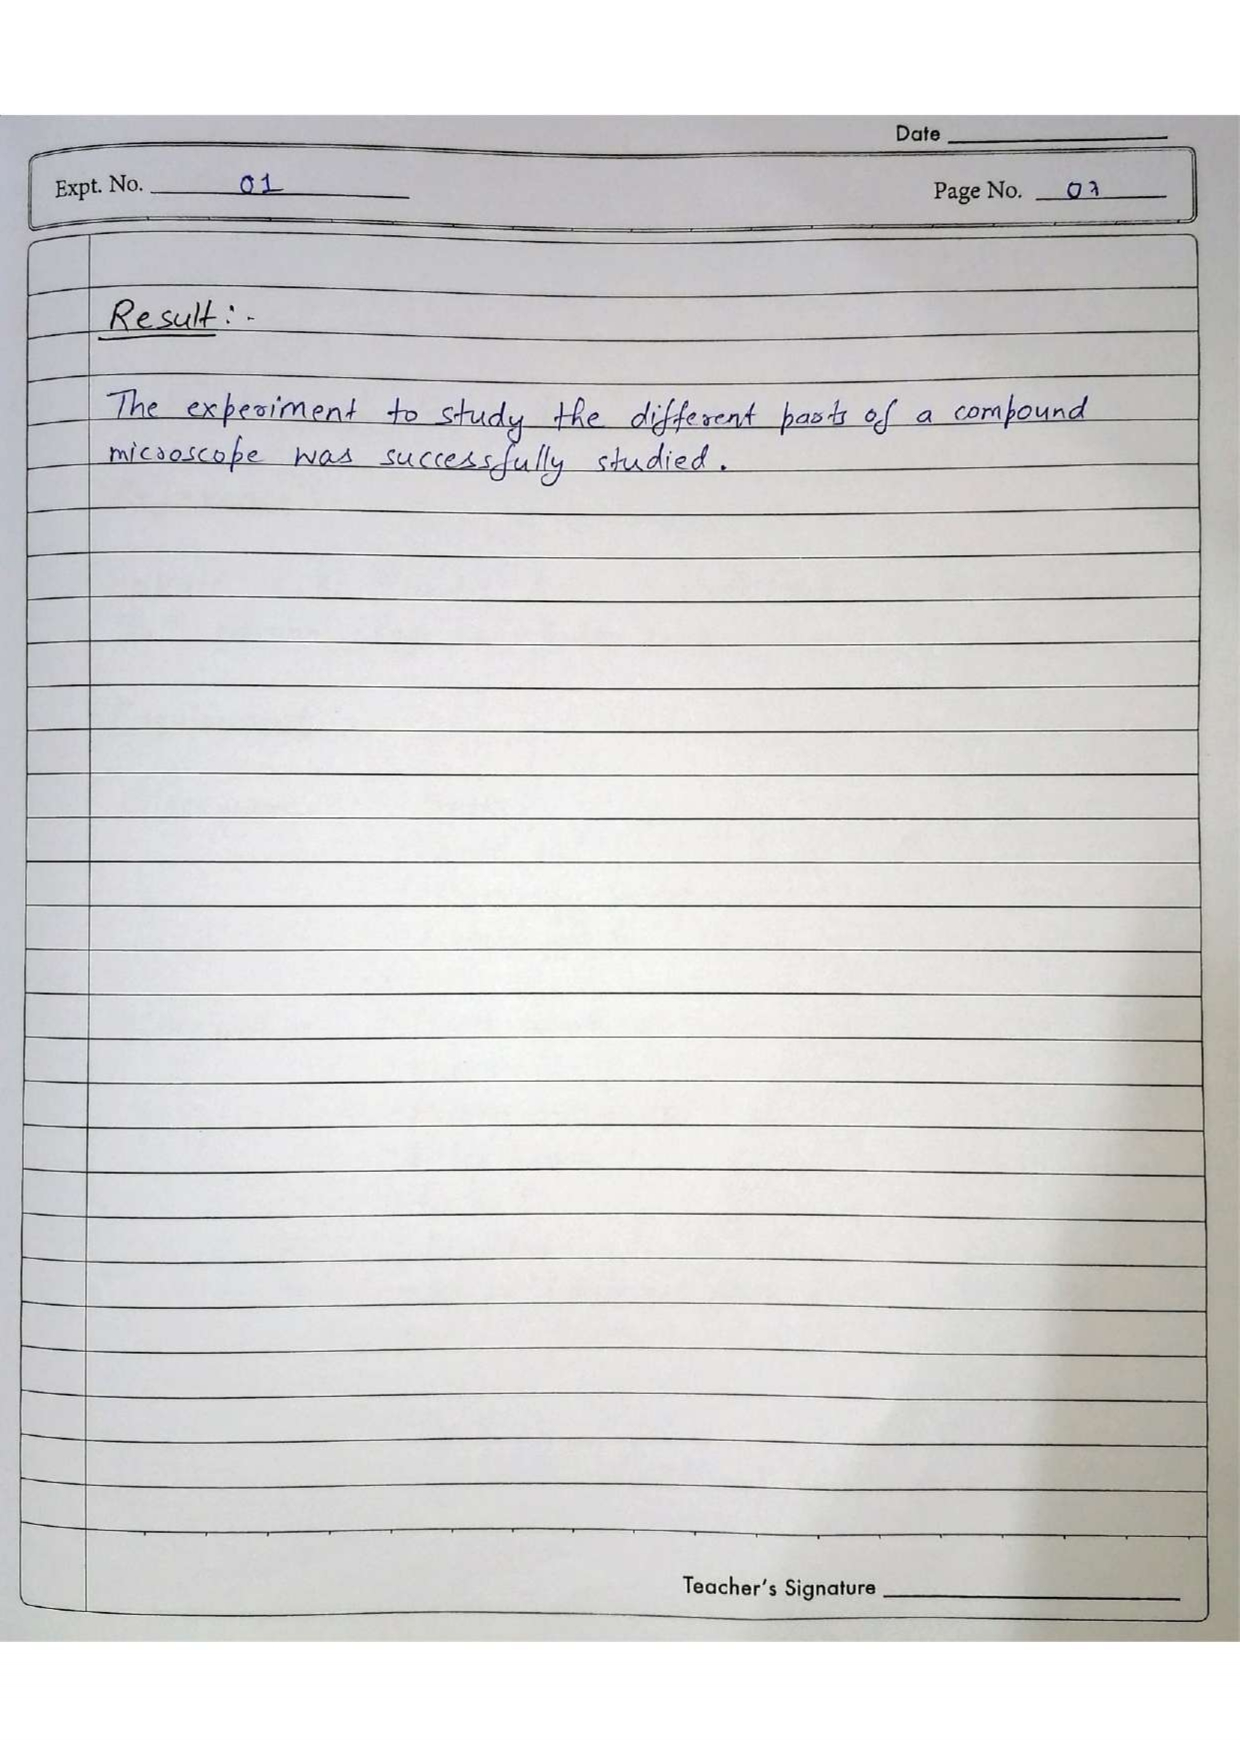 Date
Expt. No. 01
Page No. 07
Result:-
The experiment to study the different parts of a compound
microscope was successfully studied.
Teacher's Signature